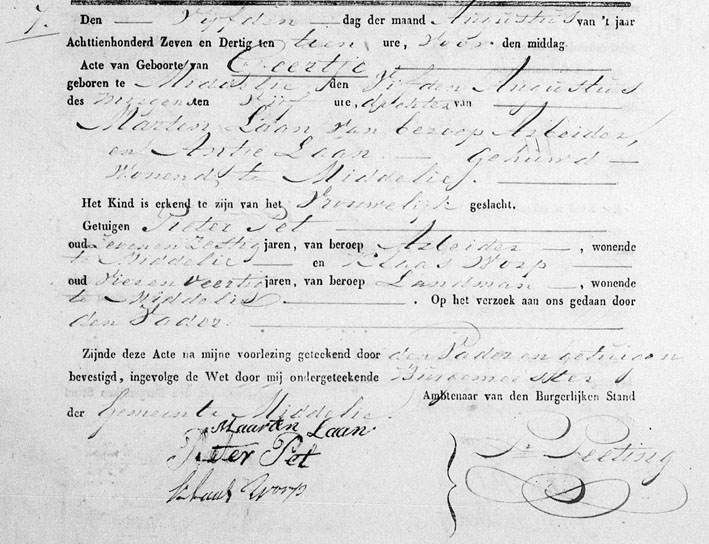 7.
Den — Vijfden — dag der maand Augustus van 't jaar
Achttienhonderd Zeven en Dertig ten tien ure, Voor den middag.
Acte van Geboorte van Geertje
geboren te Middelie, den Vijfden Augustus
des morgens ten vijf ure, dochter van
Marten Laan van beroep Arbeider,
en Antie Laan. — Gehuwd —
Wonende te Middelie.
Het Kind is erkend te zijn van het Vrouwelijk geslacht.
Getuigen Pieter Pet
oud Zeven en Zestig jaren, van beroep Arbeider —, wonende
te Middelie — en Klaas Worp —
oud Vier en Veertig jaren, van beroep Landman —, wonende
te Middelie. Op het verzoek aan ons gedaan door
den Vader.
Zijnde deze Acte na mijne voorlezing geteekend door den Vader en getuigen
bevestigd, ingevolge de Wet door mij ondergeteekende Burgemeester,
Ambtenaar van den Burgerlijken Stand
der Gemeente Middelie.
Maarten Laan
Pieter Pet
Klaas Worp
Peeting